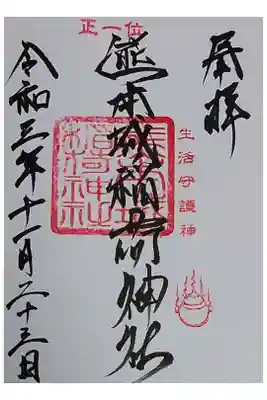 奉拝
生活守護神
正一位
熊本城稲荷神社
令和三年十一月二十三日